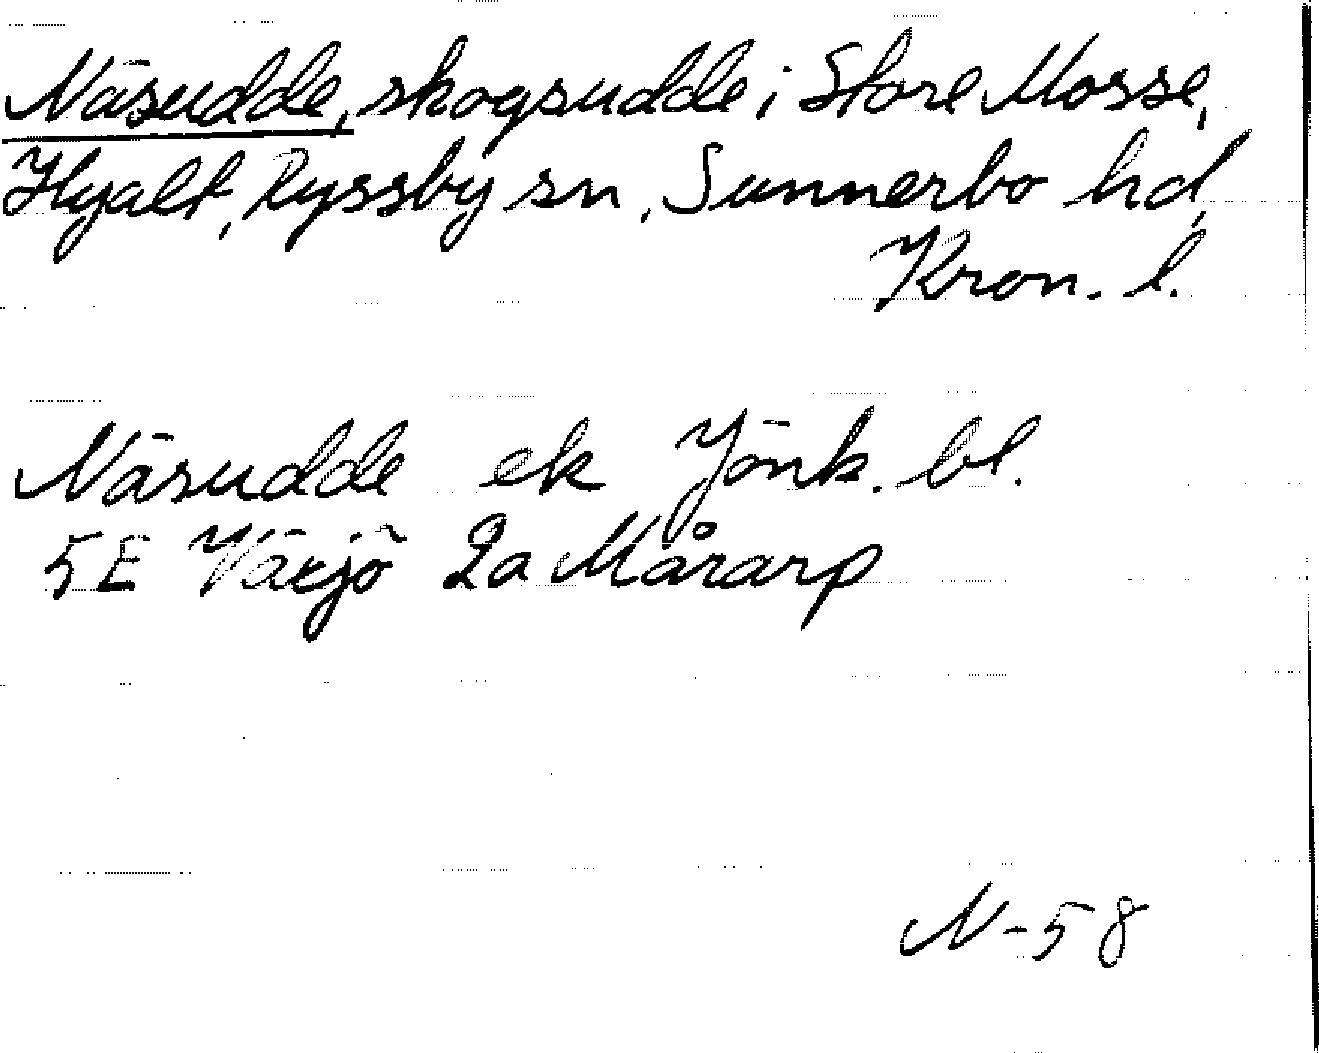 Näsudde, skogsudde i Store Mosse,
Hyalt, Ryssby sn, Sunnerbo hd,
Kron. l.
Näsudde ek Jönk. bl.
5E Växjö 2a Mårarp
N-58